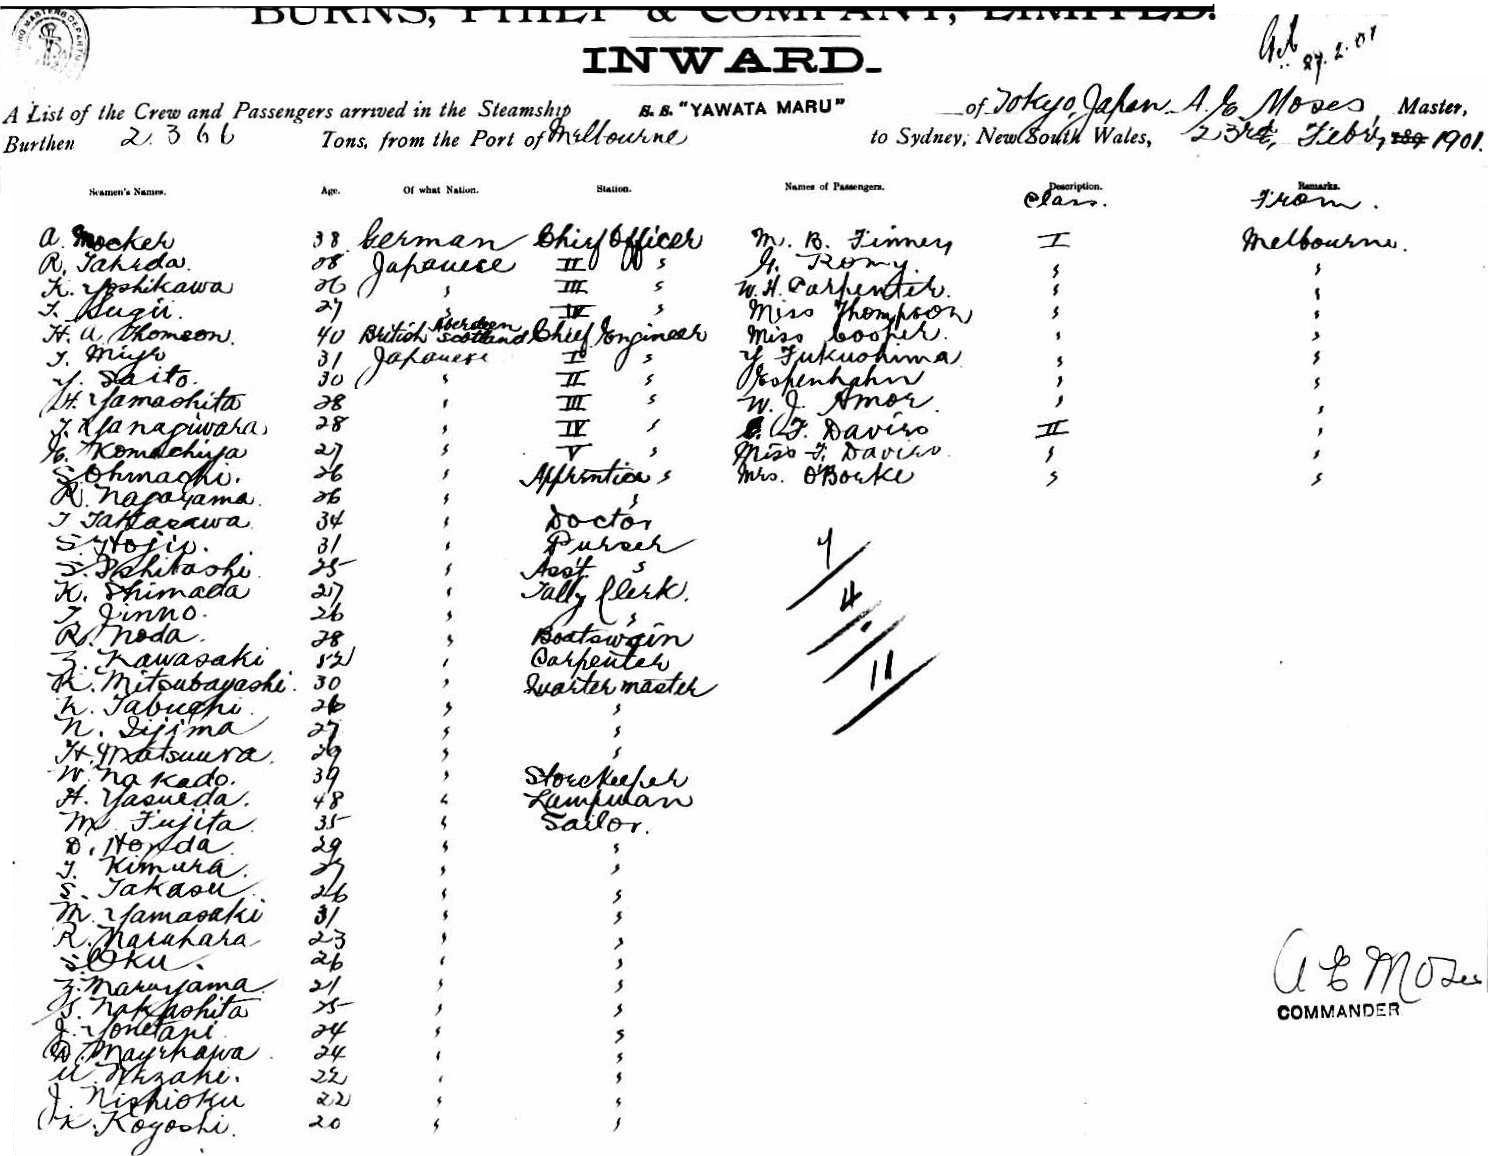 BURNS, PHILP & COMPANY, LIMITED.
INWARD.
27.2.01
A List of the Crew and Passengers arrived in the Steamship S.S. "YAWATA MARU" of Tokyo, Japan A. E. Moses, Master,
Burthen 2366 Tons, from the Port of Melbourne to Sydney, New South Wales, 23rd, Feby, 189 1901.
Seamen's Names. Age. Of what Nation. Station. Names of Passengers. Description. Remarks.
Class. From.
A. Mocker 38 German Chief Officer M. B. Finney I Melbourne.
R. Takeda 28 Japanese II " G. Romy. " "
K. Yoshikawa 26 " III " W. H. Carpenter. " "
T. Sugii. 27 " IV " Miss Thompson " "
H. A. Thomson. 40 British Aberdeen Scotland Chief Engineer Miss Cooper. " "
T. Miyr 31 Japanese I " Y Fukushima " "
Y. Saito. 30 " II " Espenhahn " "
H. Yamashita 28 " III " W. J. Amor. " "
T. Yanagiwara 28 " IV " F. Davies II "
Komachiya 27 " V " Miss F. Davies. " "
S Ohmachi. 26 " Apprentice " Mrs. O'Borke " "
R. Nagayama. 26 " "
T Takasawa 34 " Doctor
S. Hojio. 31 " Purser
S. Ishibashi 25 " Asst. "
K. Shimada 27 " Tally Clerk.
T. Jinno. 26 " "
R. Noda. 28 " Boatswain
Z. Kawasaki 52 " Carpenter
K. Mitsubayashi. 30 " Quartermaster
K. Tabuchi 26 " "
N. Iijima 27 " "
H. Matsuura. 29 " "
W. Nakado. 39 " Storekeeper
H. Yasueda. 48 " Lampman
M. Fujita. 35 " Sailor.
D. Honda. 29 " "
T. Kimura. 27 " "
S. Takasu 26 " "
M. Yamasaki 31 " "
R. Naruhara 23 " "
S Oku. 26 " "
Z. Maruyama 21 " "
S. Nakashita 25 " "
J. Yonetani 24 " "
Mayekawa 24 " "
22 " "
J. Nishioku 22 " "
K. Koyoshi. 20 " "
7
4
11
A E Moses
COMMANDER